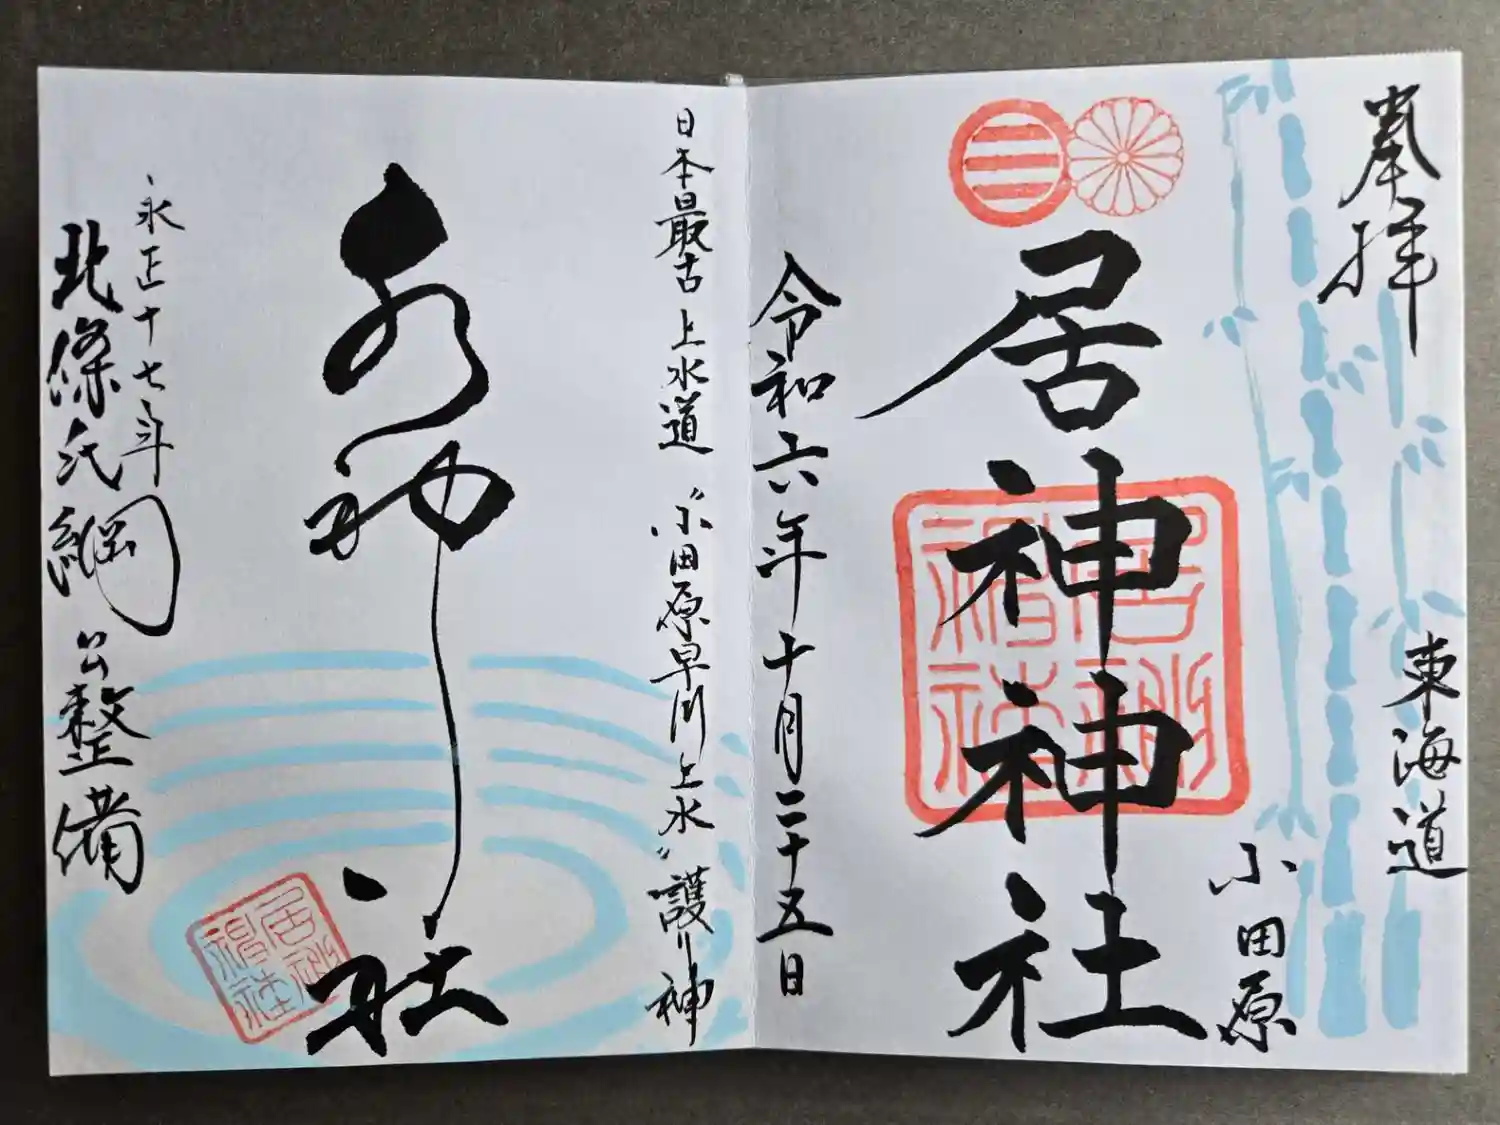 奉拝
東海道
小田原
居神神社
令和六年十月二十五日
日本最古 上水道 “小田原早川上水” 護り神
水神社
永正十七年
北條氏綱公整備